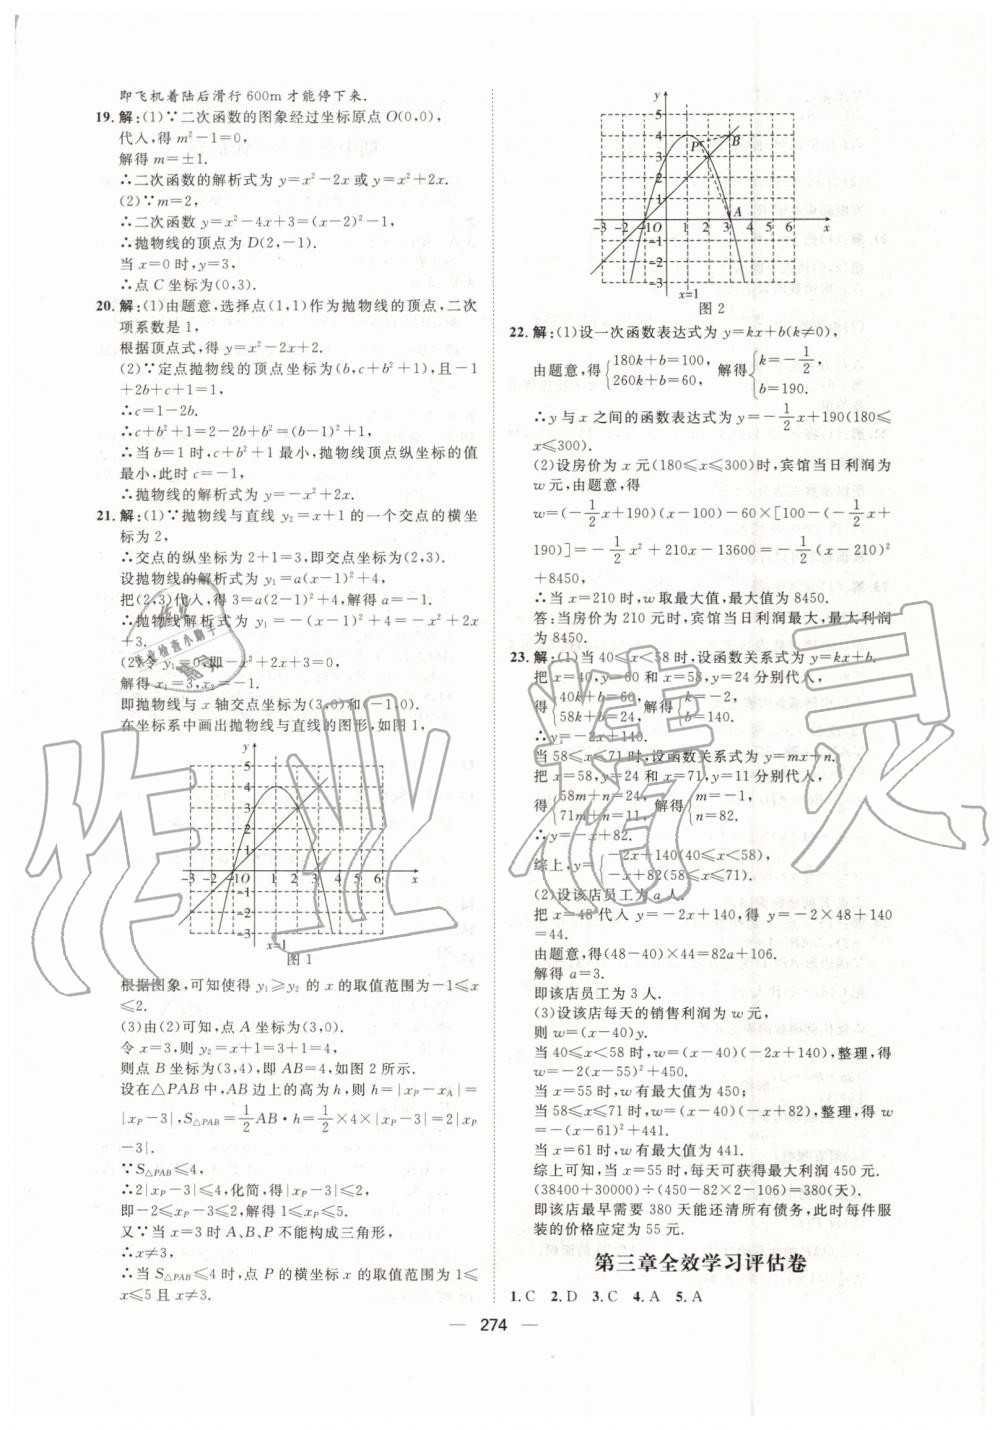 即飞机着陆后滑行 600m 才能停下来.
19. 解:(1)∵二次函数的图象经过坐标原点 O(0,0),
代入,得 m²-1=0,
解得 m=±1.
∴二次函数的解析式为 y=x²-2x 或 y=x²+2x.
(2)∵m=2,
∴二次函数 y=x²-4x+3=(x-2)²-1,
∴抛物线的顶点为 D(2,-1).
当 x=0 时,y=3,
∴点 C 坐标为(0,3).
20. 解:(1)由题意,选择点(1,1)作为抛物线的顶点,二次
项系数是 1,
根据顶点式,得 y=x²-2x+2.
(2)∵定点抛物线的顶点坐标为(b,c+b²+1),且-1
+2b+c+1=1,
∴c=1-2b.
∴c+b²+1=2-2b+b²=(b-1)²+1,
∴当 b=1 时,c+b²+1 最小,抛物线顶点纵坐标的值
最小,此时 c=-1,
∴抛物线的解析式为 y=-x²+2x.
21. 解:(1)∵抛物线与直线 y₂=x+1 的一个交点的横坐
标为 2,
∴交点的纵坐标为 2+1=3,即交点坐标为(2,3).
设抛物线的解析式为 y₁=a(x-1)²+4,
把(2,3)代入,得 3=a(2-1)²+4,解得 a=-1.
∴抛物线解析式为 y₁=-(x-1)²+4=-x²+2x
+3.
(2)令 y₁=0,即-x²+2x+3=0,
解得 x₁=3,x₂=-1,
即抛物线与 x 轴交点坐标为(3,0)和(-1,0).
在坐标系中画出抛物线与直线的图形,如图 1,
y
5
4
3
2
1
-3 -2 -1O 1 2 3 4 5 6 x
-1
-2
-3
x=1
图 1
根据图象,可知使得 y₁≥y₂ 的 x 的取值范围为-1≤x
≤2.
(3)由(2)可知,点 A 坐标为(3,0).
令 x=3,则 y₂=x+1=3+1=4,
则点 B 坐标为(3,4),即 AB=4,如图 2 所示.
设在△PAB 中,AB 边上的高为 h,则 h=|xP-xA|=
|xP-3|,S△PAB=1/2AB·h=1/2×4×|xP-3|=2|xP
-3|.
∵S△PAB≤4,
∴2|xP-3|≤4,化简,得|xP-3|≤2,
即-2≤xP-3≤2,解得 1≤xP≤5.
又∵当 x=3 时 A、B、P 不能构成三角形,
∴x≠3,
∴当 S△PAB≤4 时,点 P 的横坐标 x 的取值范围为 1≤
x≤5 且 x≠3.
y
5
4
3
2
1
P B A
-3 -2 -1O 1 2 3 4 5 6 x
-1
-2
-3
x=1
图 2
22. 解:(1)设一次函数表达式为 y=kx+b(k≠0),
由题意,得{180k+b=100, 260k+b=60, 解得{k=-1/2, b=190.
∴y 与 x 之间的函数表达式为 y=-1/2x+190(180≤
x≤300).
(2)设房价为 x 元(180≤x≤300)时,宾馆当日利润为
w 元,由题意,得
w=(-1/2x+190)(x-100)-60×[100-(-1/2x+
190)]=-1/2x²+210x-13600=-1/2(x-210)²
+8450,
∴当 x=210 时,w 取最大值,最大值为 8450.
答:当房价为 210 元时,宾馆当日利润最大,最大利润
为 8450.
23. 解:(1)当 40≤x<58 时,设函数关系式为 y=kx+b.
把 x=40,y=60 和 x=58,y=24 分别代入,
得{40k+b=60, 58k+b=24, 解得{k=-2, b=140.
∴y=-2x+140.
当 58≤x≤71 时,设函数关系式为 y=mx+n.
把 x=58,y=24 和 x=71,y=11 分别代入,
得{58m+n=24, 71m+n=11, 解得{m=-1, n=82.
∴y=-x+82.
综上,y={-2x+140(40≤x<58), -x+82(58≤x≤71).
(2)设该店员工为 a 人.
把 x=48 代入 y=-2x+140,得 y=-2×48+140
=44.
由题意,得(48-40)×44=82a+106.
解得 a=3.
即该店员工为 3 人.
(3)设该店每天的销售利润为 w 元,
则 w=(x-40)y.
当 40≤x<58 时,w=(x-40)(-2x+140),整理,得
w=-2(x-55)²+450,
当 x=55 时,w 有最大值为 450;
当 58≤x≤71 时,w=(x-40)(-x+82),整理,得 w
=-(x-61)²+441.
当 x=61 时,w 有最大值为 441.
综上可知,当 x=55 时,每天可获得最大利润 450 元.
(38400+30000)÷(450-82×2-106)=380(天).
即该店最早需要 380 天能还清所有债务,此时每件服
装的价格应定为 55 元.
第三章全效学习评估卷
1. C 2. D 3. C 4. A 5. A
— 274 —
作业精灵
作业
检查小助手